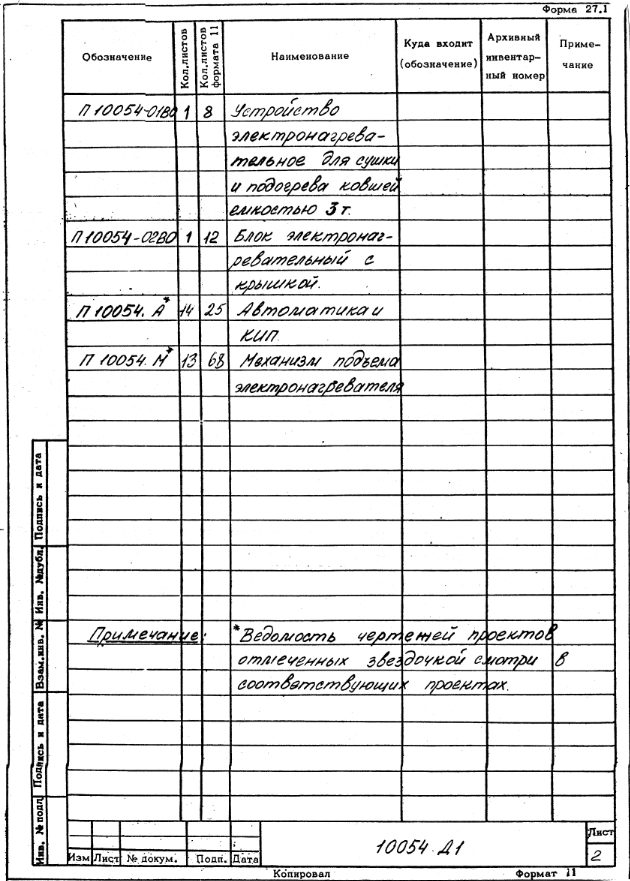 Форма 27.1
Обозначение
Кол.листов
Кол.листов формата 11
Наименование
Куда входит (обозначение)
Архивный инвентарный номер
Примечание
П 10054-01ВО 1 8 Устройство
электронагрева-
тельное для сушки
и подогрева ковшей
емкостью 3 т.
П 10054-02ВО 1 12 Блок электронаг-
ревательный с
крышкой.
П 10054. А* 14 25 Автоматика и
КИП
П 10054. М* 13 68 Механизм подъема
электронагревателя
Примечание: *Ведомость чертежей проектов
отмеченных звездочкой смотри в
соответствующих проектах.
Подпись и дата
Инв. №дубл.
Взам.инв. №
Подпись и дата
Инв. № подл
Изм Лист № докум. Подп. Дата
10054 Д1
Лист
2
Копировал
Формат 11